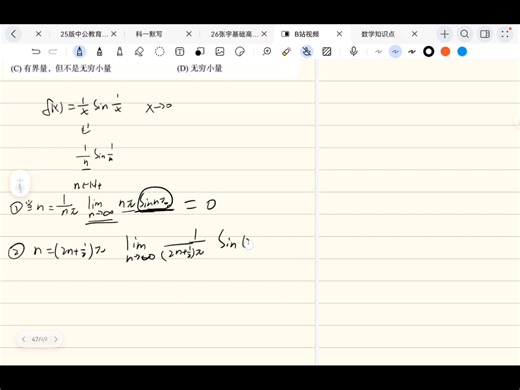 25版中公教育...
科一默写
26张宇基础高...
B站视频
数学知识点
(C) 有界量，但不是无穷小量 (D) 无穷小量
f(x) = 1/x sin 1/x x→0
1/n sin 1/n
n∈N+
① 当 n = 1/nπ lim n→∞ nπ sin nπ = 0
② n = (2n+1/2)π lim n→∞ 1/(2n+1/2)π sin (
47/49